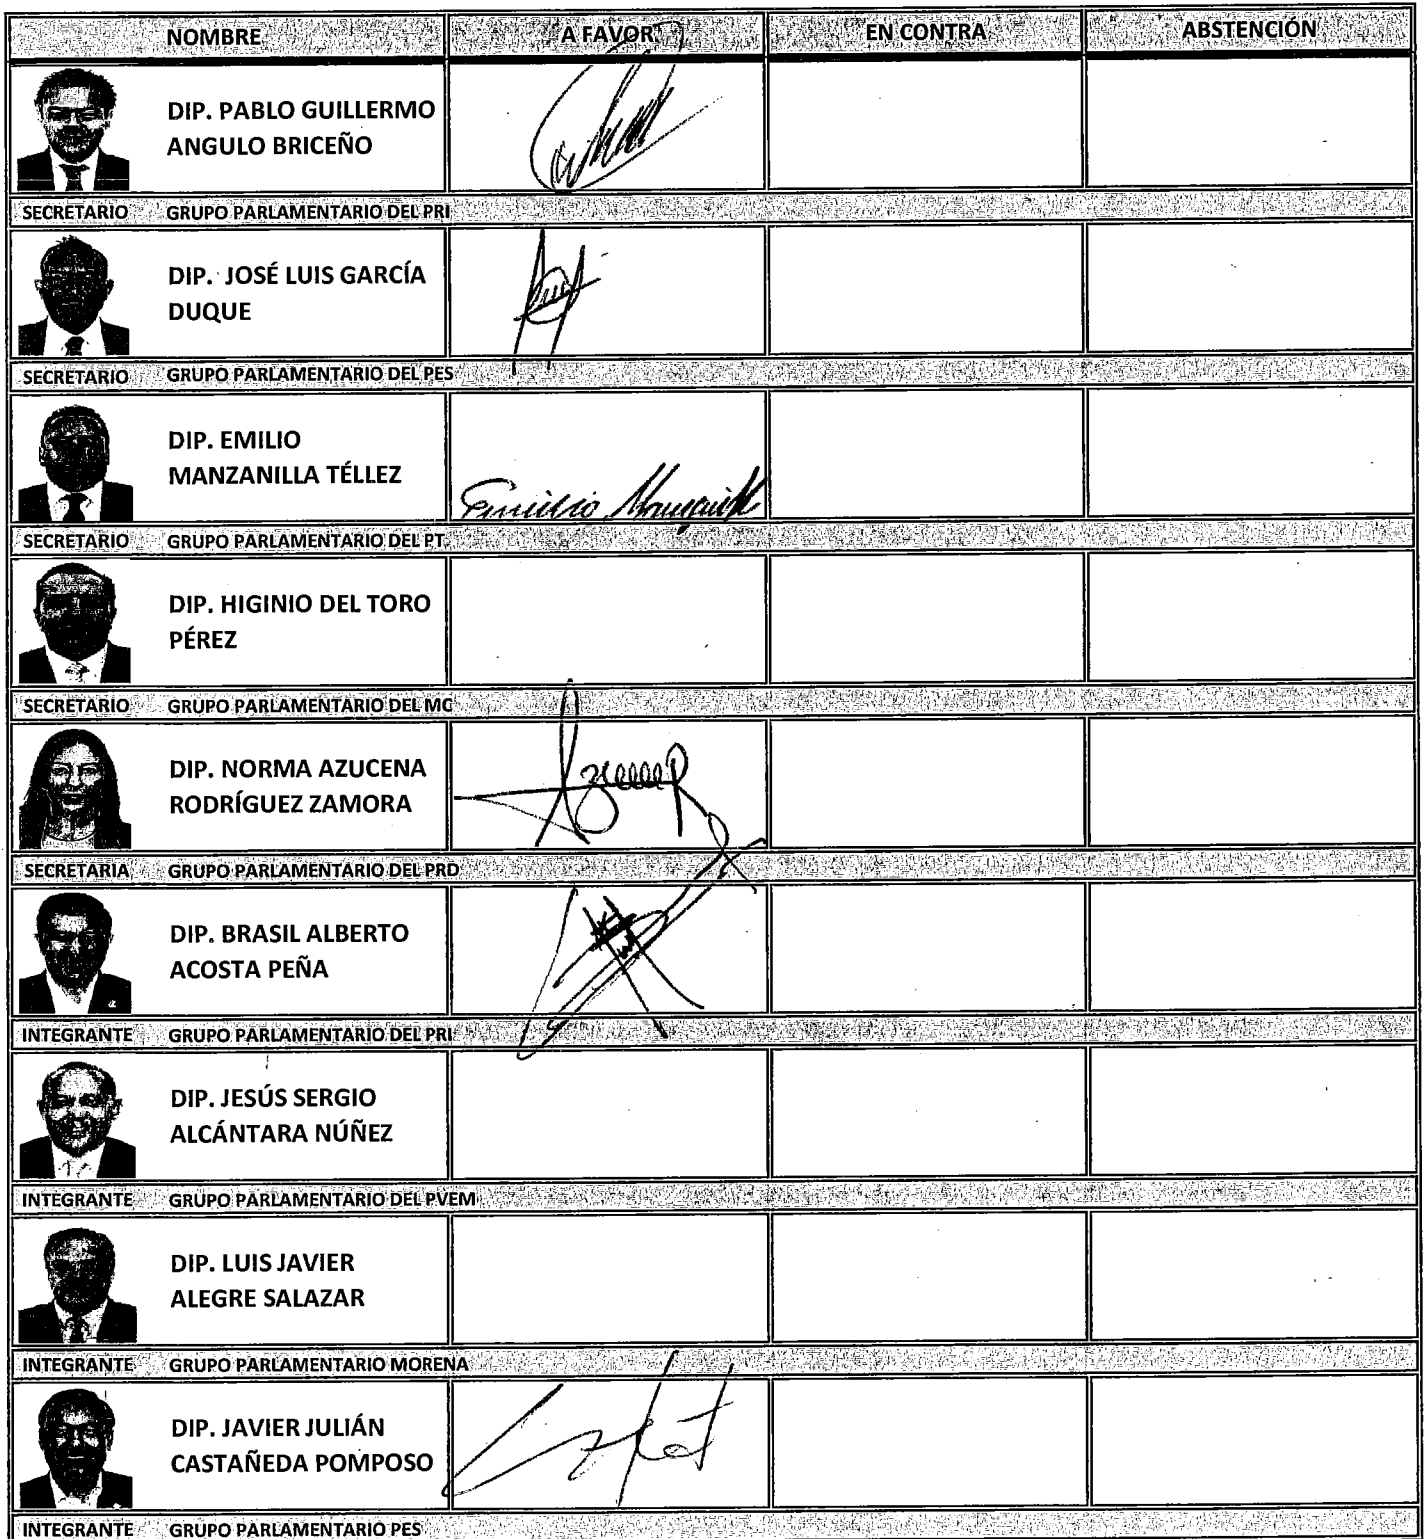 NOMBRE A FAVOR EN CONTRA ABSTENCIÓN
DIP. PABLO GUILLERMO
ANGULO BRICEÑO
SECRETARIO GRUPO PARLAMENTARIO DEL PRI
DIP. JOSÉ LUIS GARCÍA
DUQUE
SECRETARIO GRUPO PARLAMENTARIO DEL PES
DIP. EMILIO
MANZANILLA TÉLLEZ
Emilio
SECRETARIO GRUPO PARLAMENTARIO DEL PT
DIP. HIGINIO DEL TORO
PÉREZ
SECRETARIO GRUPO PARLAMENTARIO DEL MC
DIP. NORMA AZUCENA
RODRÍGUEZ ZAMORA
SECRETARIA GRUPO PARLAMENTARIO DEL PRD
DIP. BRASIL ALBERTO
ACOSTA PEÑA
INTEGRANTE GRUPO PARLAMENTARIO DEL PRI
DIP. JESÚS SERGIO
ALCÁNTARA NÚÑEZ
INTEGRANTE GRUPO PARLAMENTARIO DEL PVEM
DIP. LUIS JAVIER
ALEGRE SALAZAR
INTEGRANTE GRUPO PARLAMENTARIO MORENA
DIP. JAVIER JULIÁN
CASTAÑEDA POMPOSO
INTEGRANTE GRUPO PARLAMENTARIO PES